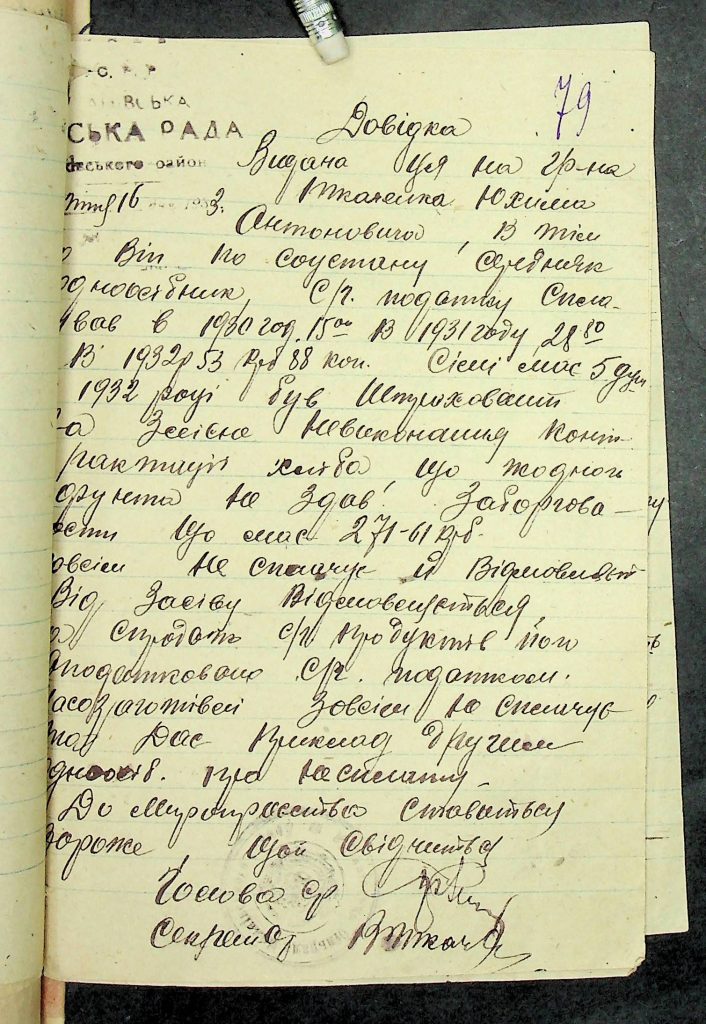 79
С. Р. Р
ВСЬКА
СЬКА РАДА
ського район
16 193 3.
Довідка
Видана ця на гр-на
Ткаченка Юхима
Антоновича, в тім
Він по соустану середняк
дноосібник, С/г. податку спла-
вав в 1930 год. 15 00 В 1931 году 28 80
В 1932 р 53 крб 88 коп. Сімі має 5 душ
1932 році був Штрахований
Зазлісне Невиконання конт-
рактації хліба що жодного
фунта не Здав! Заборгова-
ости що має 271-61 крб.
овсім не сплачує й Відмовляєт
Від Засіву Відмовляється
За спродаж с/г продуктів його
оподатковано с/г. податком.
ясозаготівлі Зовсім не сплачує
Дає Приклад другим
дноосіб. про несплату
До Мироприємства ставиться
вороже Що й Свідчиться
Голова ср
Секретар ВТкач